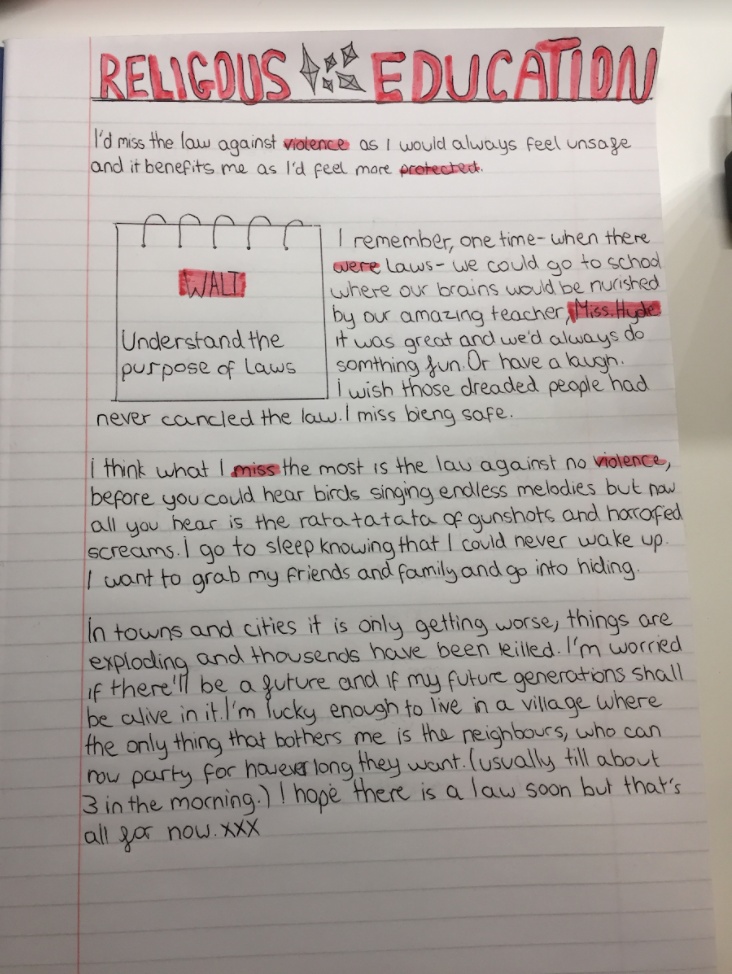 RELIGOUS EDUCATION
I'd miss the law against violence as I would always feel unsafe
and it benefits me as I'd feel more protected.
WALT
Understand the
purpose of laws
I remember, one time - when there
were laws - we could go to school
where our brains would be nurished
by our amazing teacher, Miss.Hyde
it was great and we'd always do
somthing fun. Or have a laugh.
i wish those dreaded people had
never cancled the law. I miss bieng safe.
i think what I miss the most is the law against no violence,
before you could hear birds singing endless melodies but now
all you hear is the ratatatata of gunshots and horrofied
screams. I go to sleep knowing that I could never wake up.
I want to grab my friends and family and go into hiding.
In towns and cities it is only getting worse, things are
exploding and thousends have been killed. I'm worried
if there'll be a future and if my future generations shall
be alive in it. I'm lucky enough to live in a village where
the only thing that bothers me is the neighbours, who can
now party for however long they want. (usually till about
3 in the morning.) I hope there is a law soon but that's
all for now. xxx